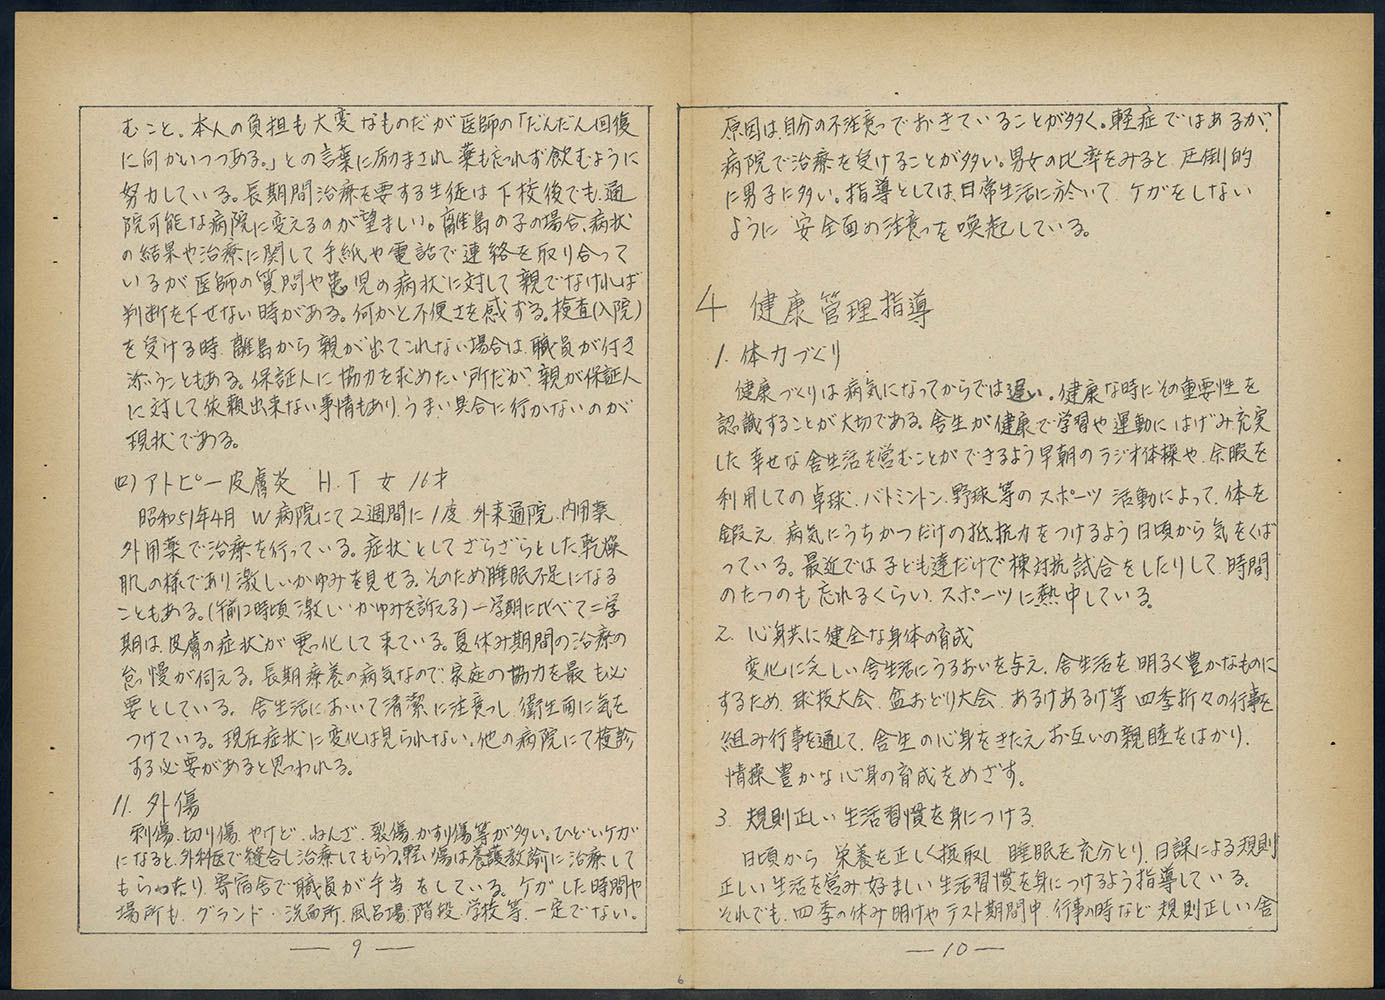 むこと。本人の負担も大変なものだが医師の「だんだん回復
に向かいつつある。」との言葉に励まされ薬も忘れず飲むように
努力している。長期間治療を要する生徒は下校後でも、通
院可能な病院に変えるのが望ましい。離島の子の場合、病状
の結果や治療に関して手紙や電話で連絡を取り合って
いるが医師の質問や患児の病状に対して親でなければ
判断を下せない時がある。何かと不便さを感ずる。検査(入院)
を受ける時、離島から親が出てこれない場合は、職員が付き
添うこともある。保証人に協力を求めたい所だが、親が保証人
に対して依頼出来ない事情もあり、うまい具合に行かないのが
現状である。
(四)アトピー皮膚炎 H.T 女 16才
昭和51年4月 W病院にて2週間に1度 外来通院、内用薬、
外用薬で治療を行っている。症状としてざらざらとした乾燥
肌の様であり激しいかゆみを見せる。そのため睡眠不足になる
こともある。(午前2時頃激しいかゆみを訴える)一学期に比べて二学
期は、皮膚の症状が悪化して来ている。夏休み期間の治療の
怠慢が伺える。長期療養の病気なので、家庭の協力を最も必
要としている。舎生活において清潔に注意し、衛生面に気を
つけている。現在症状に変化は見られない。他の病院にて検診
する必要があると思われる。
11. 外傷
刺傷、切り傷、やけど、ねんざ、裂傷、かすり傷等が多い。ひどいケガ
になると、外科医で縫合し治療してもらう。軽い傷は養護教諭に治療して
もらったり、寄宿舎で職員が手当をしている。ケガした時間や
場所も、グランド、洗面所、風呂場、階段、学校等、一定でない。
— 9 —
原因は、自分の不注意でおきていることが多く。軽症ではあるが、
病院で治療を受けることが多い。男女の比率をみると、圧倒的
に男子に多い。指導としては、日常生活に於いて、ケガをしない
ように安全面の注意を喚起している。
4 健康管理指導
1. 体力づくり
健康づくりは病気になってからでは遅い。健康な時にその重要性を
認識することが大切である。舎生が健康で学習や運動にはげみ充実
した幸せな舎生活を営むことができるよう早朝のラジオ体操や、余暇を
利用しての卓球、バトミントン、野球等のスポーツ活動によって、体を
鍛え、病気にうちかつだけの抵抗力をつけるよう日頃から気をくば
っている。最近では子ども達だけで棟対抗試合をしたりして、時間
のたつのも忘れるくらい、スポーツに熱中している。
2. 心身共に健全な身体の育成
変化に乏しい舎生活にうるおいを与え、舎生活を明るく豊かなものに
するため、球技大会、盆おどり大会、あるけあるけ等四季折々の行事を
組み行事を通して、舎生の心身をきたえお互いの親睦をはかり、
情操豊かな心身の育成をめざす。
3. 規則正しい生活習慣を身につける
日頃から栄養を正しく摂取し、睡眠を充分とり、日課による規則
正しい生活を営み好ましい生活習慣を身につけるよう指導している。
それでも、四季の休み明けやテスト期間中、行事の時など規則正しい舎
— 10 —
6